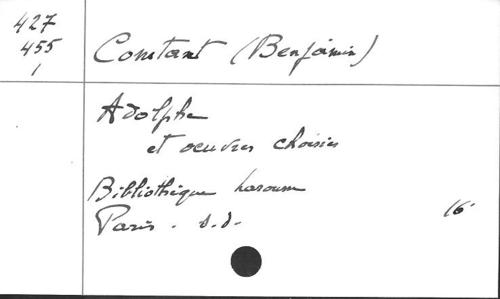 427
455
1
Constant (Benjamin)
Adolphe
et oeuvres choisies
Bibliothèque Larousse
Paris . s.d. 16°